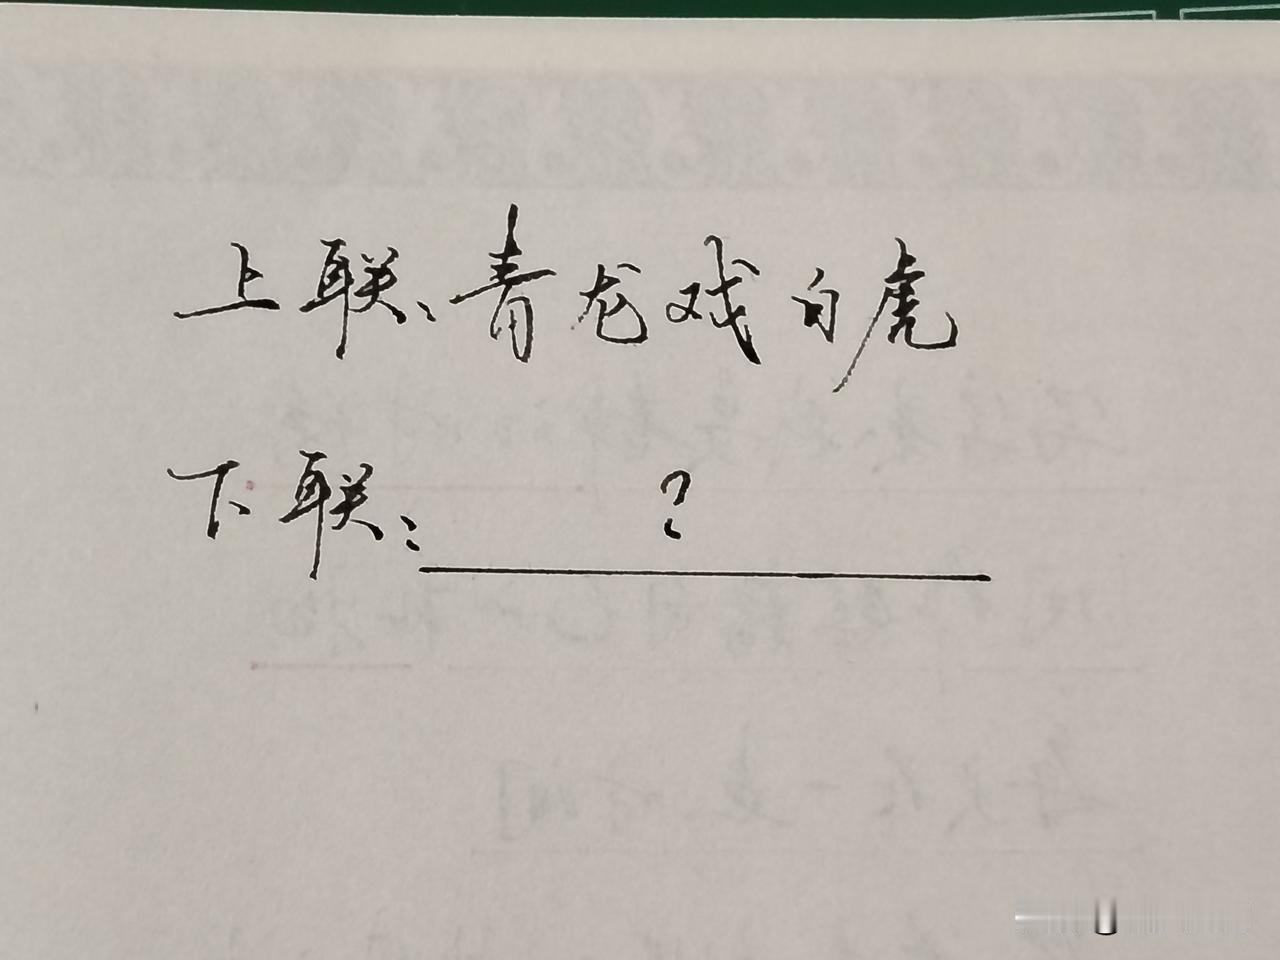 上联：青龙戏白虎
下联：？